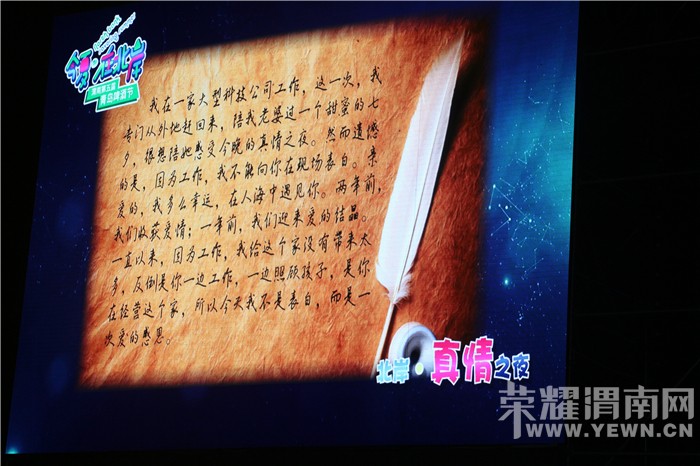 今夏·在北岸
青岛啤酒节
我在一家大型科技公司工作，这一次，我
专门从外地赶回来，陪我老婆过一个甜蜜的七
夕，很想陪她感受今晚的真情之夜。然而遗憾
的是，因为工作，我不能向你在现场表白。亲
爱的，我多么幸运，在人海中遇见你。两年前，
我们收获爱情；一年前，我们迎来爱的结晶。
一直以来，因为工作，我给这个家没有带来太
多，反倒是你一边工作，一边照顾孩子，是你
在经营这个家，所以今天我不是表白，而是一
次爱的感恩。
北岸·真情之夜
荣耀渭南网
WWW.YEWN.CN